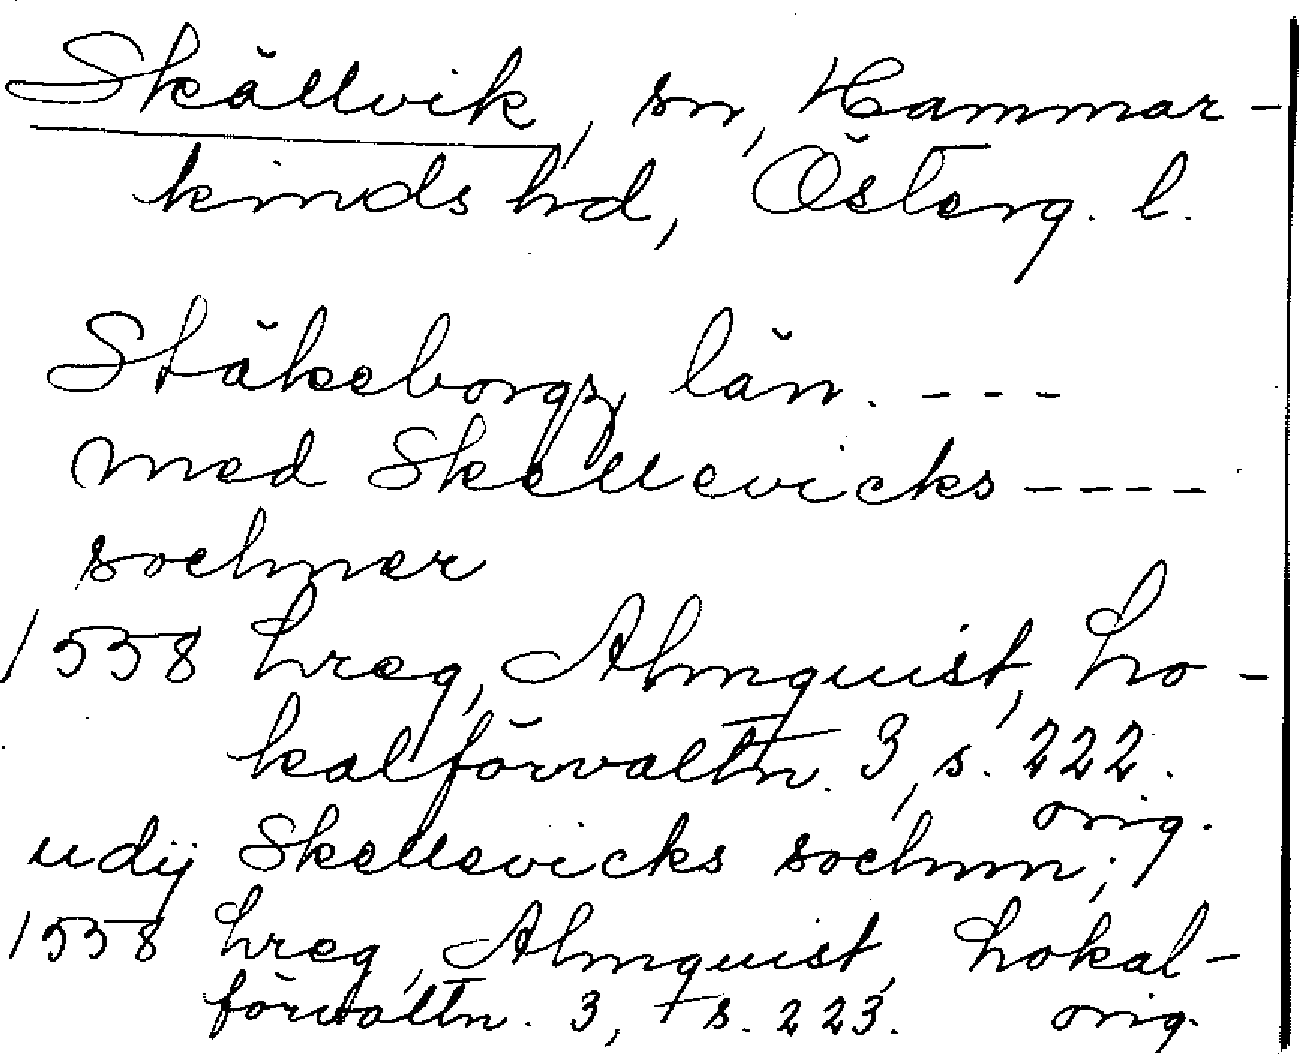 Skällvik, sn, Hammar-
kinds hd, Österg. l.
Stäkeborgz län. ---
med Skellevicks ----
sochner
1558 hreg, Almquist, Lo-
kalförvaltn. 3, s. 222.
orig.
udij Skellevicks sochnn;
1558 hreg, Almquist, Lokal-
förvaltn. 3, s. 223. orig.